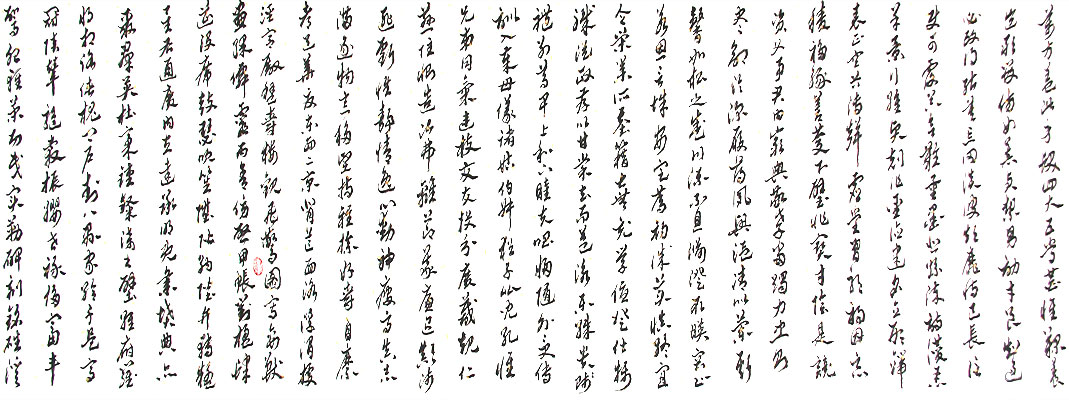 萬方蓋此身髮四大五常恭惟鞠養
豈敢毀傷女慕貞潔男效才良知過
必改得能莫忘罔談彼短靡恃己長信
使可覆器欲難量墨悲絲染詩讚羔
羊景行維賢剋念作聖德建名立形端
表正空谷傳聲虛堂習聽禍因惡
積福緣善慶尺璧非寶寸陰是競
資父事君曰嚴與敬孝當竭力忠則
盡命臨深履薄夙興溫凊似蘭斯
馨如松之盛川流不息淵澄取映容止
若思言辭安定篤初誠美慎終宜
令榮業所基籍甚無竟學優登仕攝
職從政存以甘棠去而益詠樂殊貴賤
禮別尊卑上和下睦夫唱婦隨外受傅
訓入奉母儀諸姑伯叔猶子比兒孔懷
兄弟同氣連枝交友投分切磨箴規仁
慈隱惻造次弗離節義廉退顛沛
匪虧性靜情逸心動神疲守真志
滿逐物意移堅持雅操好爵自縻
都邑華夏東西二京背邙面洛浮渭據
涇宮殿盤鬱樓觀飛驚圖寫禽獸
畫彩仙靈丙舍傍啟甲帳對楹肆
筵設席鼓瑟吹笙升階納陛弁轉疑
星右通廣內左達承明既集墳典亦
聚群英杜稿鍾隸漆書壁經府羅
將相路俠槐卿戶封八縣家給千兵高
冠陪輦驅轂振纓世祿侈富車
駕肥輕策功茂實勒碑刻銘磻溪